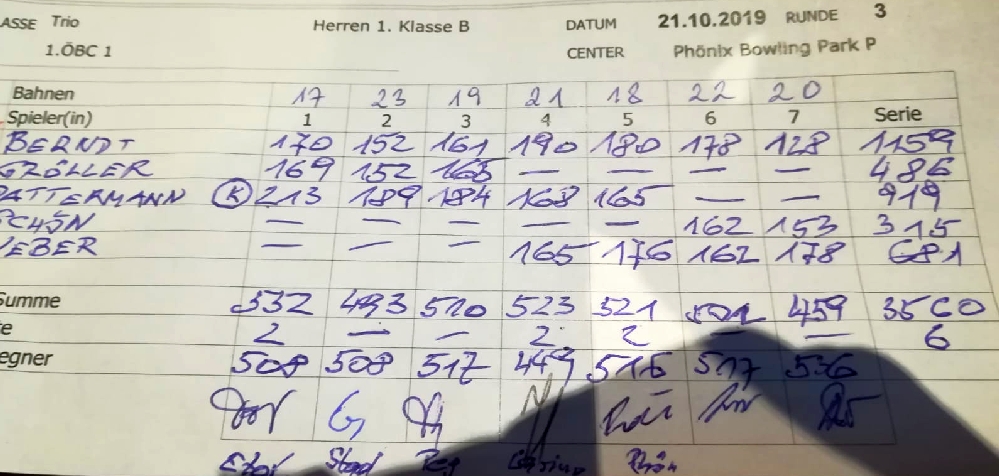 ASSE Trio Herren 1. Klasse B DATUM 21.10.2019 RUNDE 3
1.ÖBC 1 CENTER Phönix Bowling Park P
Bahnen 17 23 19 21 18 22 20
Spieler(in) 1 2 3 4 5 6 7 Serie
BERNDT 170 152 161 190 180 178 128 1159
GRÖLLER 169 152 165 — — — — 486
PATTERMANN (K) 213 189 184 168 165 — — 919
SCHÖN — — — — — 162 153 315
WEBER — — — 165 176 162 178 681
Summe 552 493 510 523 521 502 459 3560
te 2 — — 2 2 — — 6
egner 508 508 517 449 515 517 536